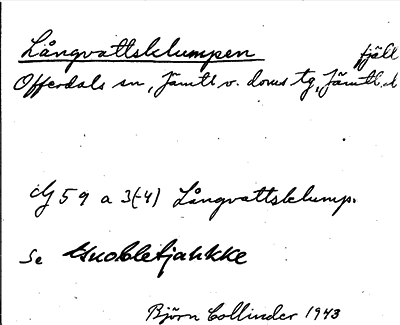 Långvattsklumpen fjäll
Offerdals sn, Jämtl v. doms tg, Jämtl. l
59 a 3(-4) Långvattsklump.
Se Guobletjahkke
Björn Collinder 1943